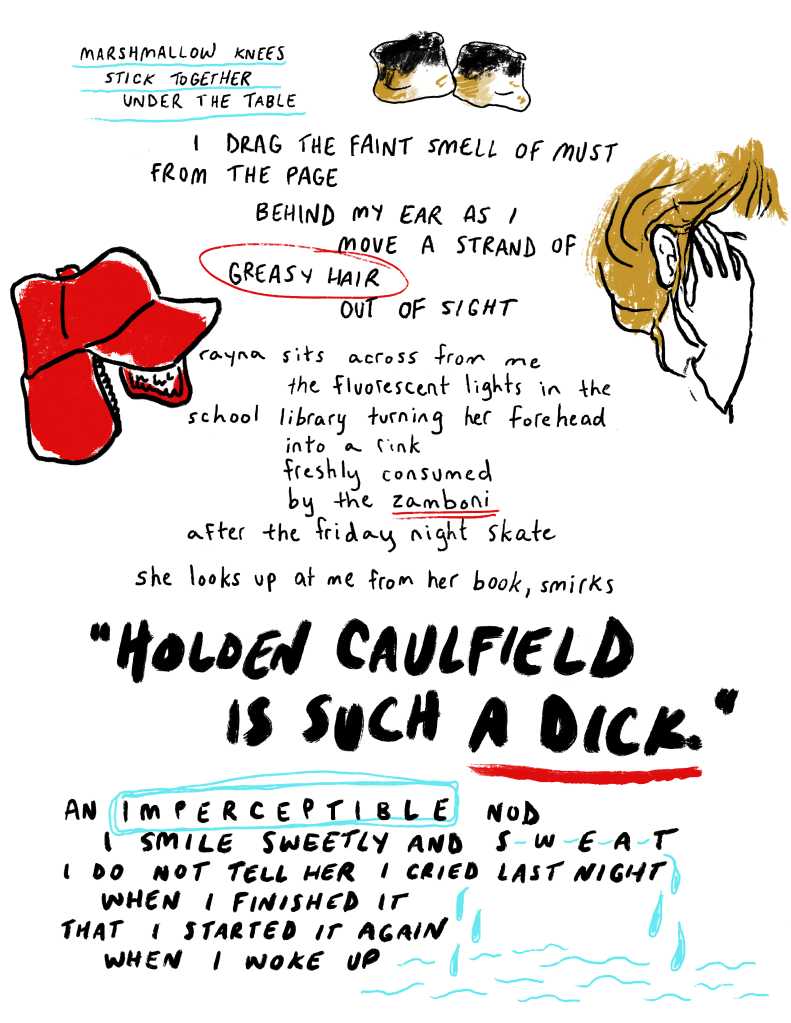 MARSHMALLOW KNEES
STICK TOGETHER
UNDER THE TABLE
I DRAG THE FAINT SMELL OF MUST
FROM THE PAGE
BEHIND MY EAR AS I
MOVE A STRAND OF
GREASY HAIR
OUT OF SIGHT
rayna sits across from me
the fluorescent lights in the
school library turning her forehead
into a rink
freshly consumed
by the zamboni
after the friday night skate
she looks up at me from her book, smirks
"HOLDEN CAULFIELD
IS SUCH A DICK."
AN IMPERCEPTIBLE NOD
I SMILE SWEETLY AND S-W-E-A-T
I DO NOT TELL HER I CRIED LAST NIGHT
WHEN I FINISHED IT
THAT I STARTED IT AGAIN
WHEN I WOKE UP